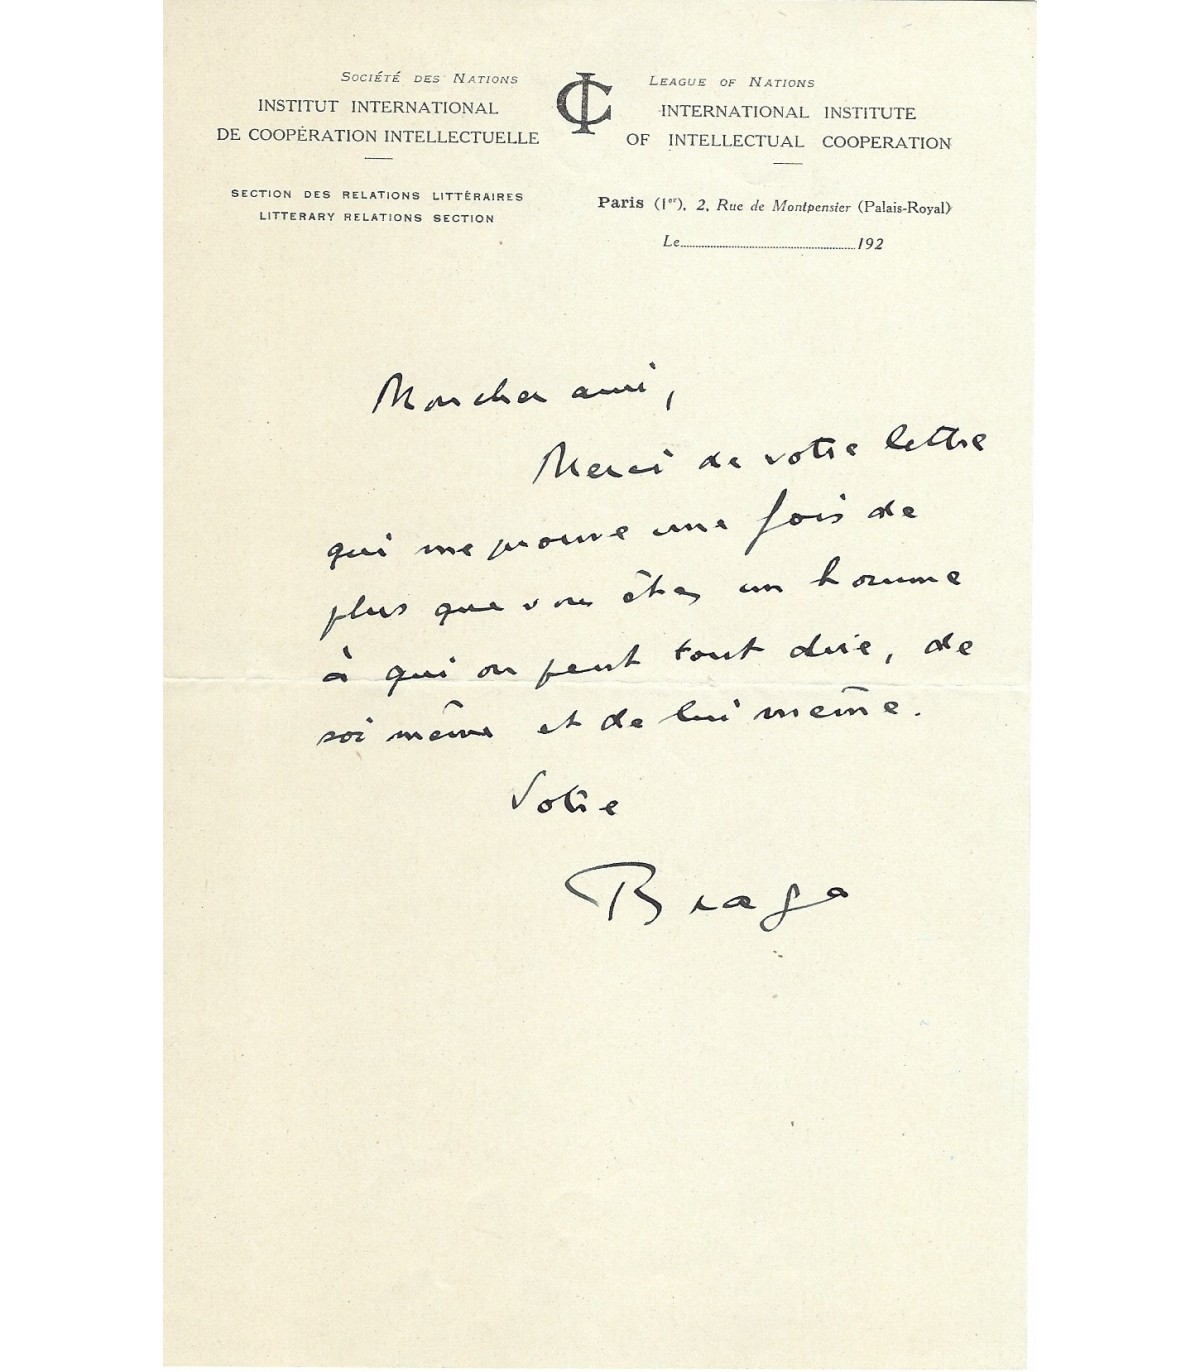 Société des Nations
INSTITUT INTERNATIONAL
DE COOPÉRATION INTELLECTUELLE
SECTION DES RELATIONS LITTÉRAIRES
LITTERARY RELATIONS SECTION
IC
League of Nations
INTERNATIONAL INSTITUTE
OF INTELLECTUAL COOPERATION
Paris (1er), 2, Rue de Montpensier (Palais-Royal)
Le 192
Mon cher ami,
Merci de votre lettre
qui me prouve une fois de
plus que vous êtes un homme
à qui on peut tout dire, de
soi même et de lui même.
Votre
Braga